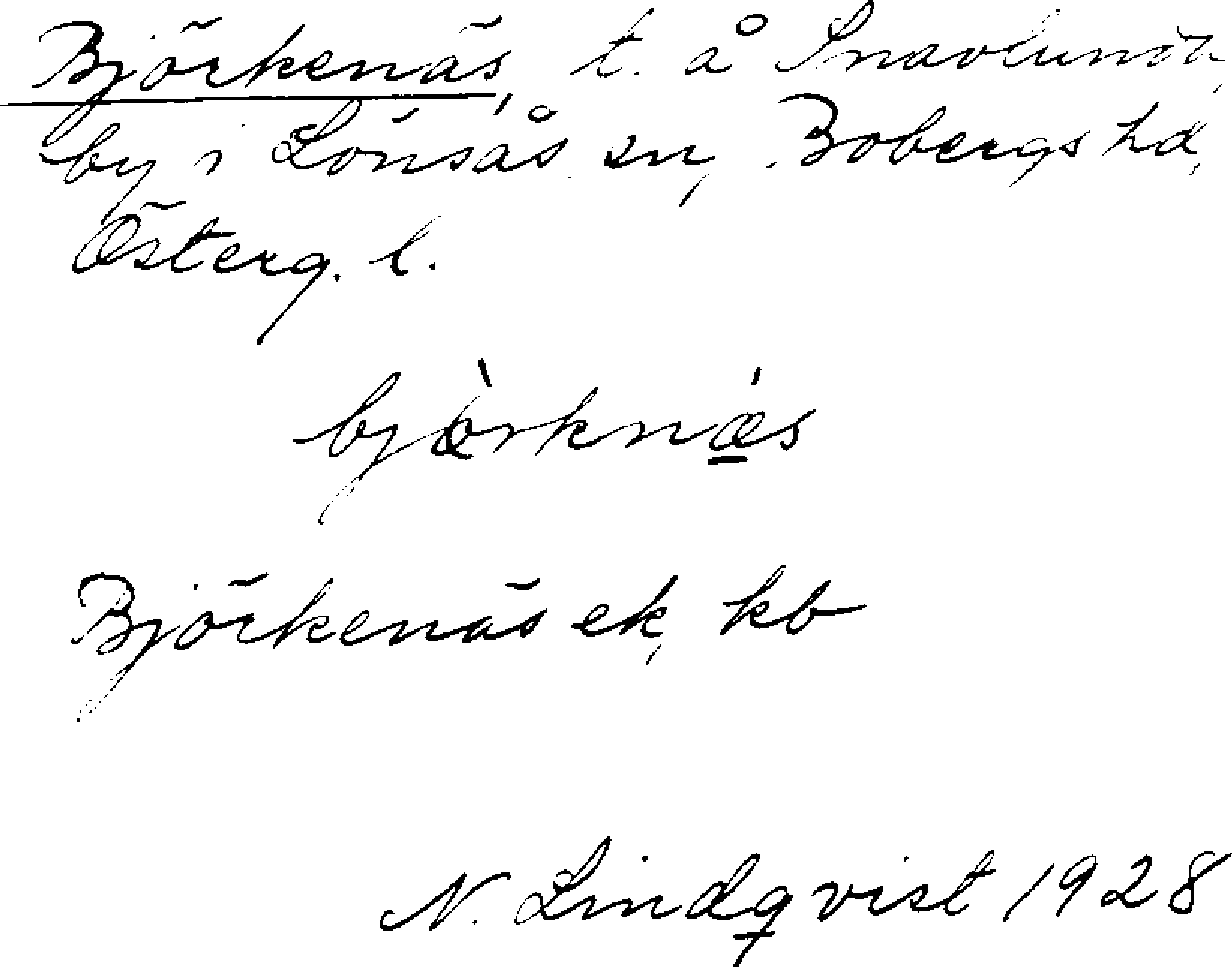 Björkenäs, t. å Snavlunda
by i Lönsås sn, Bobergs hd,
Österg. l.
bjö̀rknǽ̲s
Björkenäs ek, kb
N. Lindqvist 1928